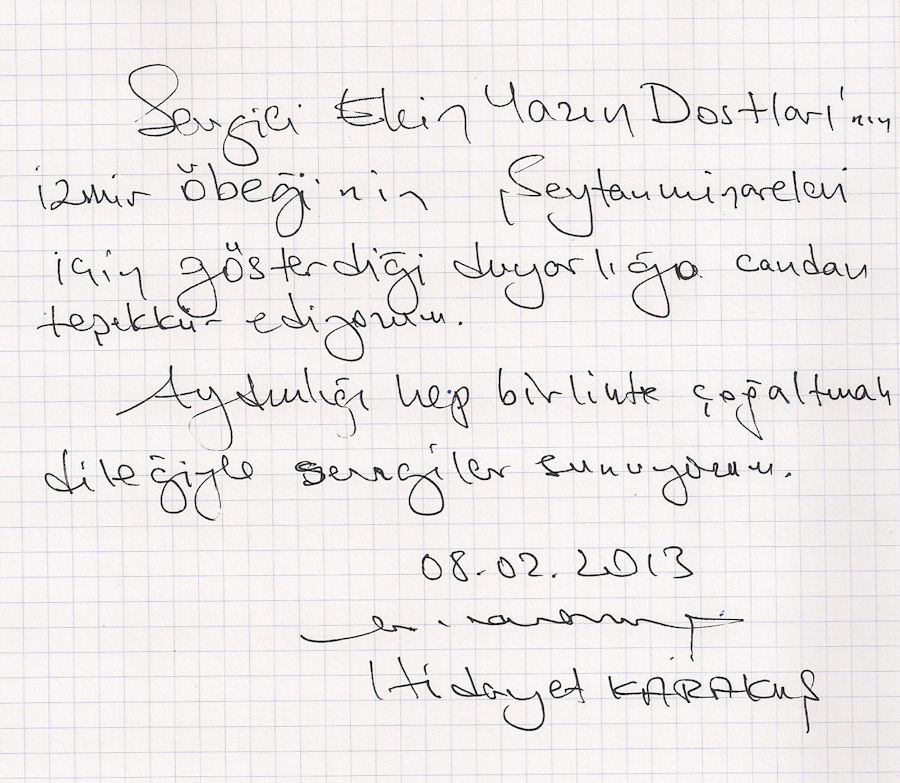 Sevgili Ekin Yazın Dostları'nın
İzmir öbeği'nin Şeytanminareleri
için gösterdiği duyarlığa candan
teşekkür ediyorum.
Aydınlığı hep birlikte çoğaltmak
dileğiyle sevgiler sunuyorum.
08.02.2013
Hidayet KARAKUŞ